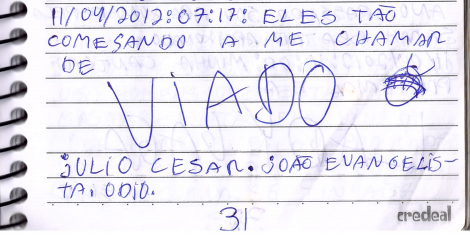 11/09/2012:07:17: ELES TÃO
COMESANDO A ME CHAMAR
DE
VIADO
JULIO CESAR. JOÃO EVANGELIS-
TA. ODIO.
31
credeal